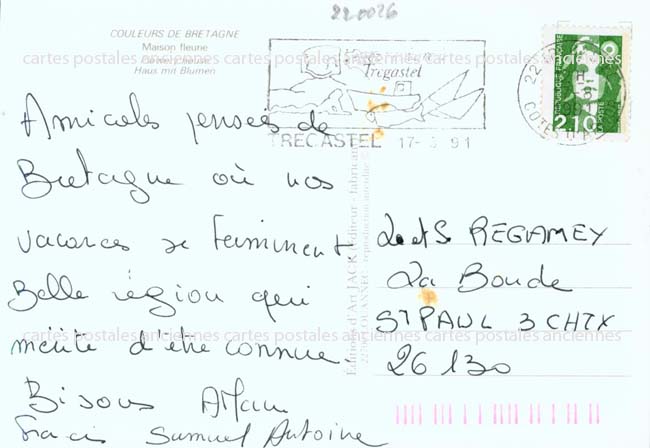 22 0026
COULEURS DE BRETAGNE
Maison fleurie
Haus mit Blumen
Tregastel
TREGASTEL 17- 91
2.10
Amicales pensées de
Bretagne où nos
vacances se terminent
Belle région qui
mérite d'être connue
Bisous Alain
Francis Samuel Antoine
REGAMEY
La Bonde
ST PAUL 3 CHTX
26 130
Editions d'Art JACK
cartes postales anciennes cartes postales anciennes cartes postales anciennes
cartes postales anciennes cartes postales anciennes cartes postales anciennes